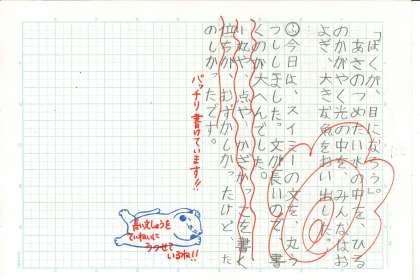 「ぼくが、目になろう。」
あさのつめたい水の中を、ひる
のかがやく光の中を、みんなはお
よぎ、大きな魚をおい出した。
今日は、スイミーの文を、丸う
つしました。文が長いので、書
くのが大へんでした。
点やかぎかっこを書く
位ちが、むずかしかったけど、た
のしかったです。
バッチリ書けています!!
長い文しょうを
ていねいに
うつせて
いるね!!